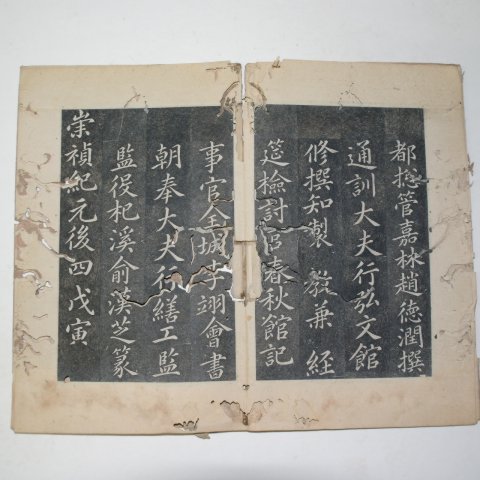 都捴管嘉林趙德潤撰
通訓大夫行弘文館
修撰知製 敎兼 經
筵檢討官春秋館記
事官全城李翊會書
朝奉大夫行繕工監
監役杞溪俞漢芝篆
崇禎紀元後四戊寅